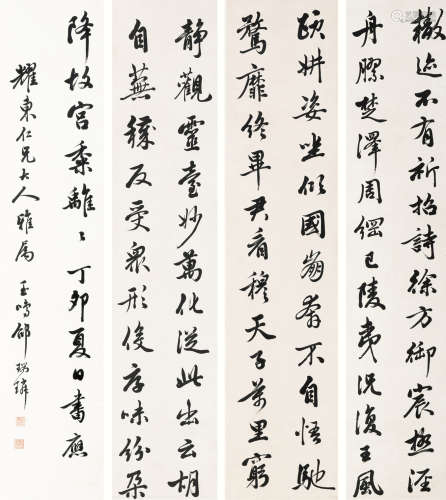 轍迹不有祈招詩徐方御宸極涇
舟膠楚澤周綱已陵夷況復王風
頤妍姿坐傾國崩奔不自悟馳
騖靡終畢君看穆天子萬里窮
靜觀靈臺妙萬化從此出云胡
自蕪穢反受衆形役厚味紛朵
降故宮黍離〻丁卯夏日書應
耀東仁兄大人雅属 玉鳴